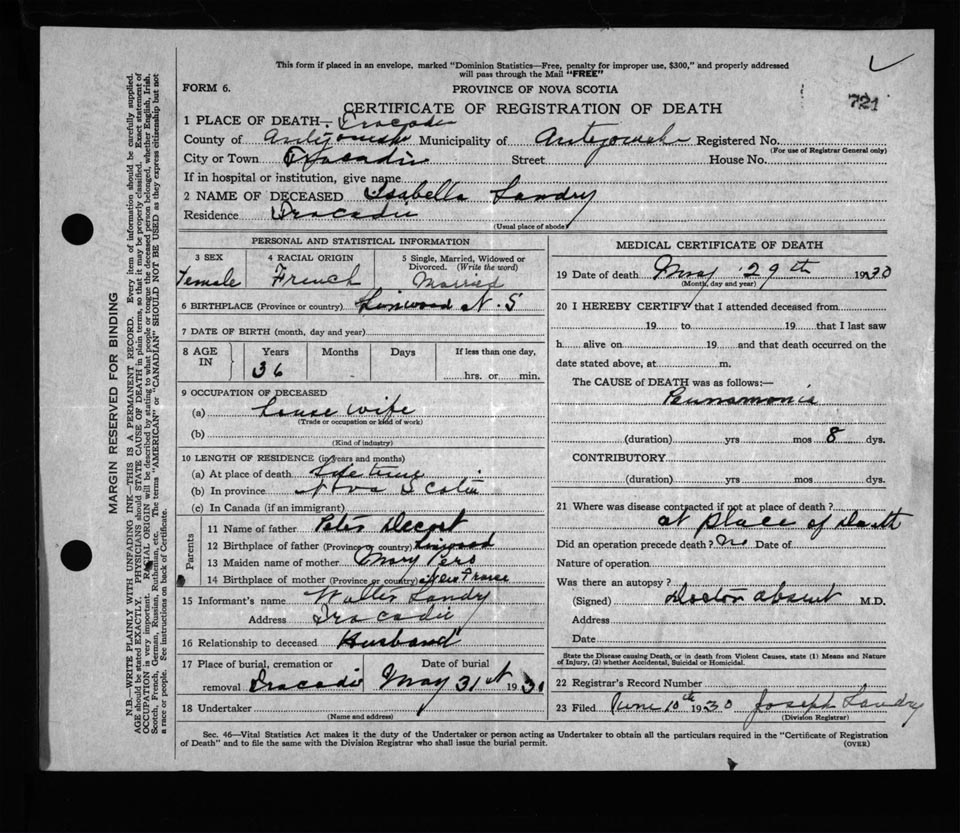 This form if placed in an envelope, marked "Dominion Statistics—Free, penalty for improper use, $300," and properly addressed
will pass through the Mail "FREE"
FORM 6.
PROVINCE OF NOVA SCOTIA
721
CERTIFICATE OF REGISTRATION OF DEATH
1 PLACE OF DEATH— Tracadie
County of Antigonish Municipality of Antigonish Registered No.
(For use of Registrar General only)
City or Town Tracadie Street House No.
If in hospital or institution, give name
2 NAME OF DECEASED Isabella Landry
Residence Tracadie
(Usual place of abode)
PERSONAL AND STATISTICAL INFORMATION
3 SEX 4 RACIAL ORIGIN 5 Single, Married, Widowed or
Divorced. (Write the word)
Female French Married
6 BIRTHPLACE (Province or country) Linwood N. S
7 DATE OF BIRTH (month, day and year)
8 AGE IN Years Months Days If less than one day,
36 hrs. or min.
9 OCCUPATION OF DECEASED
(a) house wife
(Trade or occupation or kind of work)
(b)
(Kind of industry)
10 LENGTH OF RESIDENCE (in years and months)
(a) At place of death Life time
(b) In province Nova Scotia
(c) In Canada (if an immigrant)
Parents
11 Name of father Peter Decort
12 Birthplace of father (Province or country) Linwood
13 Maiden name of mother Mary
14 Birthplace of mother (Province or country)
15 Informant's name Walter Landry
Address Tracadie
16 Relationship to deceased Husband
17 Place of burial, cremation or Date of burial
removal Tracadie May 31st 1930
18 Undertaker
(Name and address)
MEDICAL CERTIFICATE OF DEATH
19 Date of death May 29th 1930
(Month, day and year)
20 I HEREBY CERTIFY that I attended deceased from
19 to 19 that I last saw
h alive on 19 and that death occurred on the
date stated above, at m.
The CAUSE of DEATH was as follows:—
Punamonia
(duration) yrs mos 8 dys.
CONTRIBUTORY
(duration) yrs mos dys.
21 Where was disease contracted if not at place of death?
at place of Death
Did an operation precede death? No Date of
Nature of operation
Was there an autopsy?
(Signed) Doctor absent M.D.
Address
Date
State the Disease causing Death, or in death from Violent Causes, state (1) Means and Nature
of Injury, (2) whether Accidental, Suicidal or Homicidal.
22 Registrar's Record Number
23 Filed June 10th 1930 Joseph Landry
(Division Registrar)
Sec. 46—Vital Statistics Act makes it the duty of the Undertaker or person acting as Undertaker to obtain all the particulars required in the "Certificate of Registration
of Death" and to file the same with the Division Registrar who shall issue the burial permit.
(OVER)
MARGIN RESERVED FOR BINDING
N.B.—WRITE PLAINLY WITH UNFADING INK—THIS IS A PERMANENT RECORD. Every item of information should be carefully supplied.
AGE should be stated EXACTLY. PHYSICIANS should STATE CAUSE OF DEATH in plain terms, so that it may be properly classified. Exact statement of
OCCUPATION is very important. RACIAL ORIGIN will be described by stating to what people or tongue the deceased person belonged, whether English, Irish,
Scotch, French, German, Russian, Ruthenian, etc. The terms "AMERICAN" or "CANADIAN" SHOULD NOT BE USED as they express citizenship but not
a race or people. See instructions on back of Certificate.